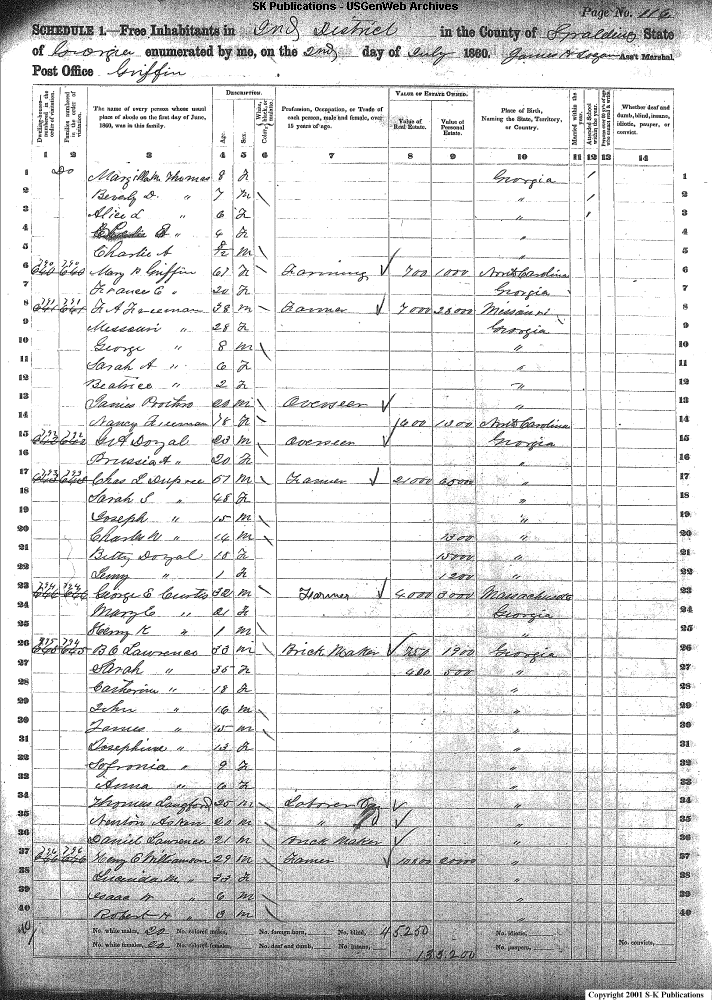 SK Publications - USGenWeb Archives
Page No. 116
SCHEDULE 1.—Free Inhabitants in 2nd District in the County of Spalding State
of Georgia enumerated by me, on the 2nd day of July 1860. Ass't Marshal.
Post Office Griffin
DESCRIPTION. VALUE OF ESTATE OWNED.
Dwelling-houses—numbered in the order of visitation.
Families numbered in the order of visitation.
The name of every person whose usual place of abode on the first day of June, 1860, was in this family.
Age.
Sex.
Color, White, black, or mulatto.
Profession, Occupation, or Trade of each person, male and female, over 15 years of age.
Value of Real Estate.
Value of Personal Estate.
Place of Birth, Naming the State, Territory, or Country.
Married within the year.
Attended School within the year.
Whether deaf and dumb, blind, insane, idiotic, pauper, or convict.
1 2 3 4 5 6 7 8 9 10 11 12 13 14
1 Do Thomas 8 f Georgia / 1
2 Beverly D. " 7 m \ " / 2
3 Alice L " 6 f " / 3
4 " 4 f " 4
5 Charlie A m \ " 5
6 790 Mary Griffin 61 f Farming ✓ 700 1000 North Carolina 6
7 Frances C " 20 f Georgia 7
8 791 F A Freeman 38 m \ Farmer ✓ 7000 Missouri 8
9 Missouri " 28 f Georgia 9
10 George " 8 m \ " 10
11 Sarah A " 6 f " 11
12 Beatrice " 2 f " 12
13 James 20 m \ Overseer ✓ " 13
14 Nancy Freeman 78 f North Carolina 14
15 792 Dozal 23 m \ Overseer ✓ Georgia 15
16 " 20 f " 16
17 793 Chas L Dupree 51 m \ Farmer ✓ 21000 " 17
18 Sarah S " 48 f " 18
19 Joseph " 15 m \ " 19
20 Charles W " 14 m \ 1300 " 20
21 Betty Dozal 18 f 15000 " 21
22 " 1 f 1200 " 22
23 794 George E Curtis m \ Farmer ✓ 4000 3000 Massachusetts 23
24 Mary E " 21 f Georgia 24
25 Henry K " 1 m \ " 25
26 795 B C Lawrence 33 m \ Brick Maker ✓ 750 1900 Georgia 26
27 Sarah " 35 f 400 500 " 27
28 Catherine " 18 f " 28
29 John " 16 m \ " 29
30 James " 15 m \ " 30
31 Josephine " 13 f " 31
32 Sofronia " 9 f " 32
33 Anna " 6 f " 33
34 Thomas Langford 30 m \ Laborer ✓ " 34
35 Newton Asken 20 m \ " ✓ " 35
36 Daniel Lawrence 21 m \ Brick Maker ✓ " 36
37 796 Henry C Williamson 29 m \ Farmer ✓ " 37
38 Lucinda M " 33 f " 38
39 Isaac W " 6 m \ " 39
40 Robert H " 3 m \ " 40
No. white males, 20 No. colored males, No. foreign born, No. blind, 45250 No. idiotic,
No. white females, 20 No. colored females, No. deaf and dumb, No. insane, 133200 No. paupers, No. convicts,
Copyright 2001 S-K Publications